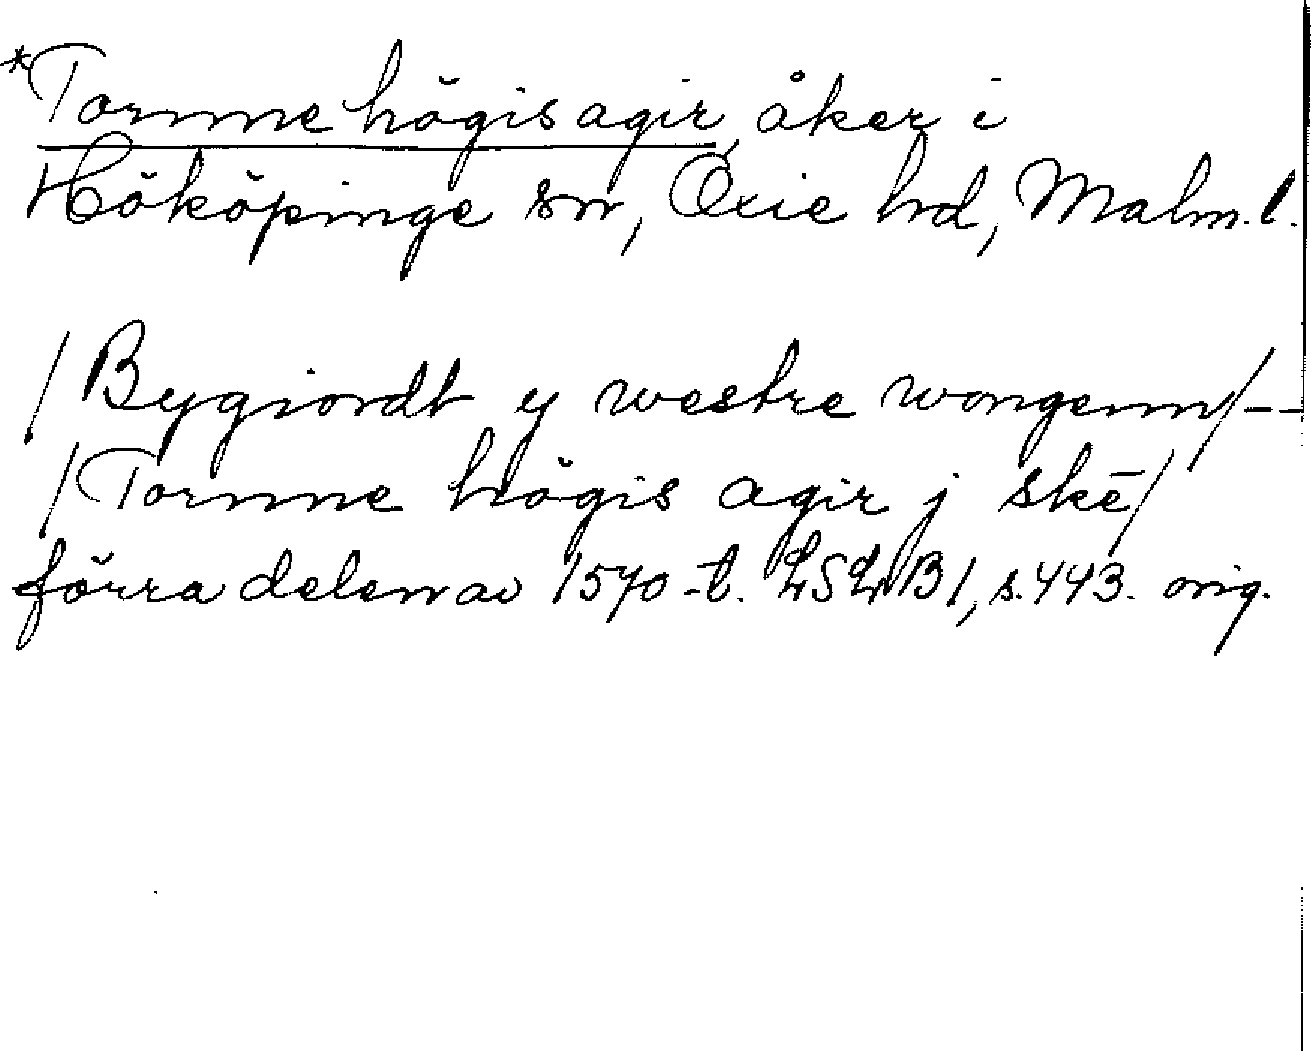 *Tornne högis agir, åker i
Hököpinge sn, Oxie hd, Malm. l.
/Bygiordt y westre wongenn/--
/Tornne högis agir j skē/
förra delen av 1570-t. LSLB1, s. 443. orig.